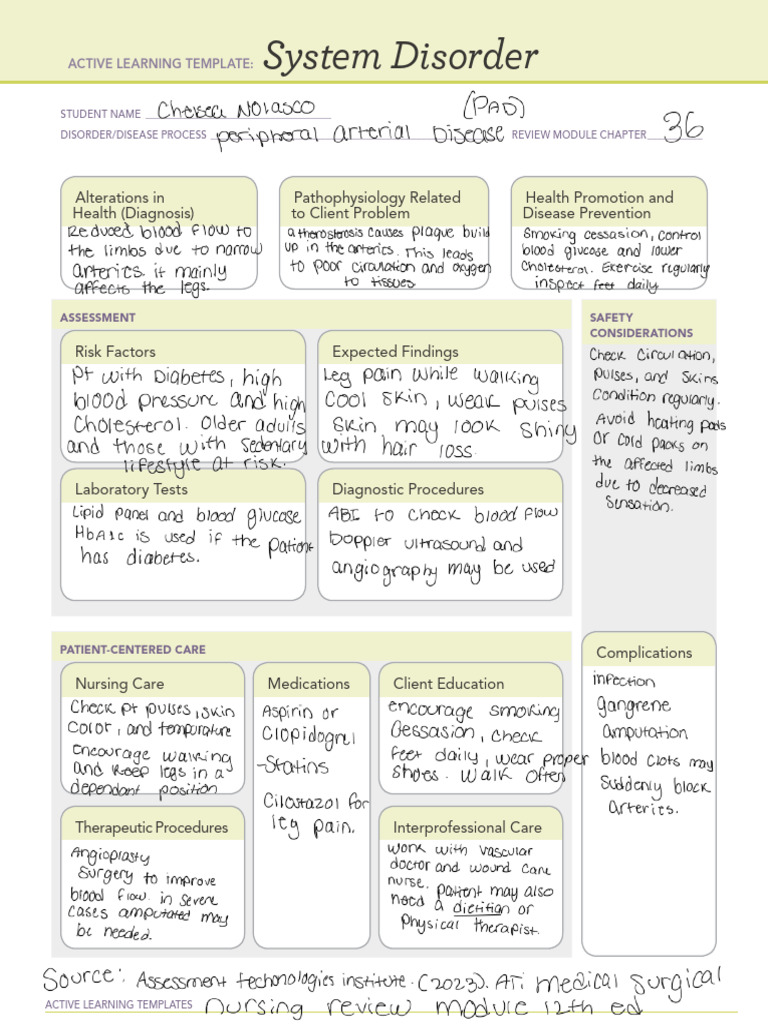 ACTIVE LEARNING TEMPLATE: System Disorder
STUDENT NAME Chelsea Nolasco (PAD)
DISORDER/DISEASE PROCESS peripheral arterial Disease REVIEW MODULE CHAPTER 36
Alterations in
Health (Diagnosis)
Reduced blood flow to
the limbs due to narrow
arteries. it mainly
affects the legs.
Pathophysiology Related
to Client Problem
atherosterosis causes plaque build
up in the arteries. This leads
to poor circulation and oxygen
to tissues
Health Promotion and
Disease Prevention
Smoking cessasion, control
blood glucose and lower
cholesterol. Exercise regularly
inspect feet daily
ASSESSMENT
Risk Factors
Pt with Diabetes, high
blood pressure and high
cholesterol. Older adults
and those with sedentary
lifestyle at risk.
Expected Findings
Leg pain while walking
cool skin, weak pulses
Skin may look shiny
with hair loss.
Laboratory Tests
Lipid panel and blood glucose
HbA1c is used if the patient
has diabetes.
Diagnostic Procedures
ABI to check blood flow
Doppler ultrasound and
angiography may be used
SAFETY
CONSIDERATIONS
Check circulation,
pulses, and skins
condition regularly.
Avoid heating pads
or cold packs on
the affected limbs
due to decreased
sensation.
PATIENT-CENTERED CARE
Nursing Care
Check pt pulses, skin
color, and temperature
encourage walking
and keep legs in a
dependant position
Medications
Aspirin or
clopidogrel
-Statins
Cilostazol for
leg pain.
Client Education
encourage smoking
cessasion, check
feet daily, wear proper
shoes. Walk often
Therapeutic Procedures
Angioplasty
surgery to improve
blood flow. in severe
cases amputated may
be needed.
Interprofessional Care
work with vascular
doctor and wound care
nurse. patient may also
need a dietitian or
physical therapist.
Complications
infection
gangrene
amputation
blood clots may
suddenly block
arteries.
Source: Assessment technologies institute. (2023). ATI medical surgical
ACTIVE LEARNING TEMPLATES nursing review module 12th ed